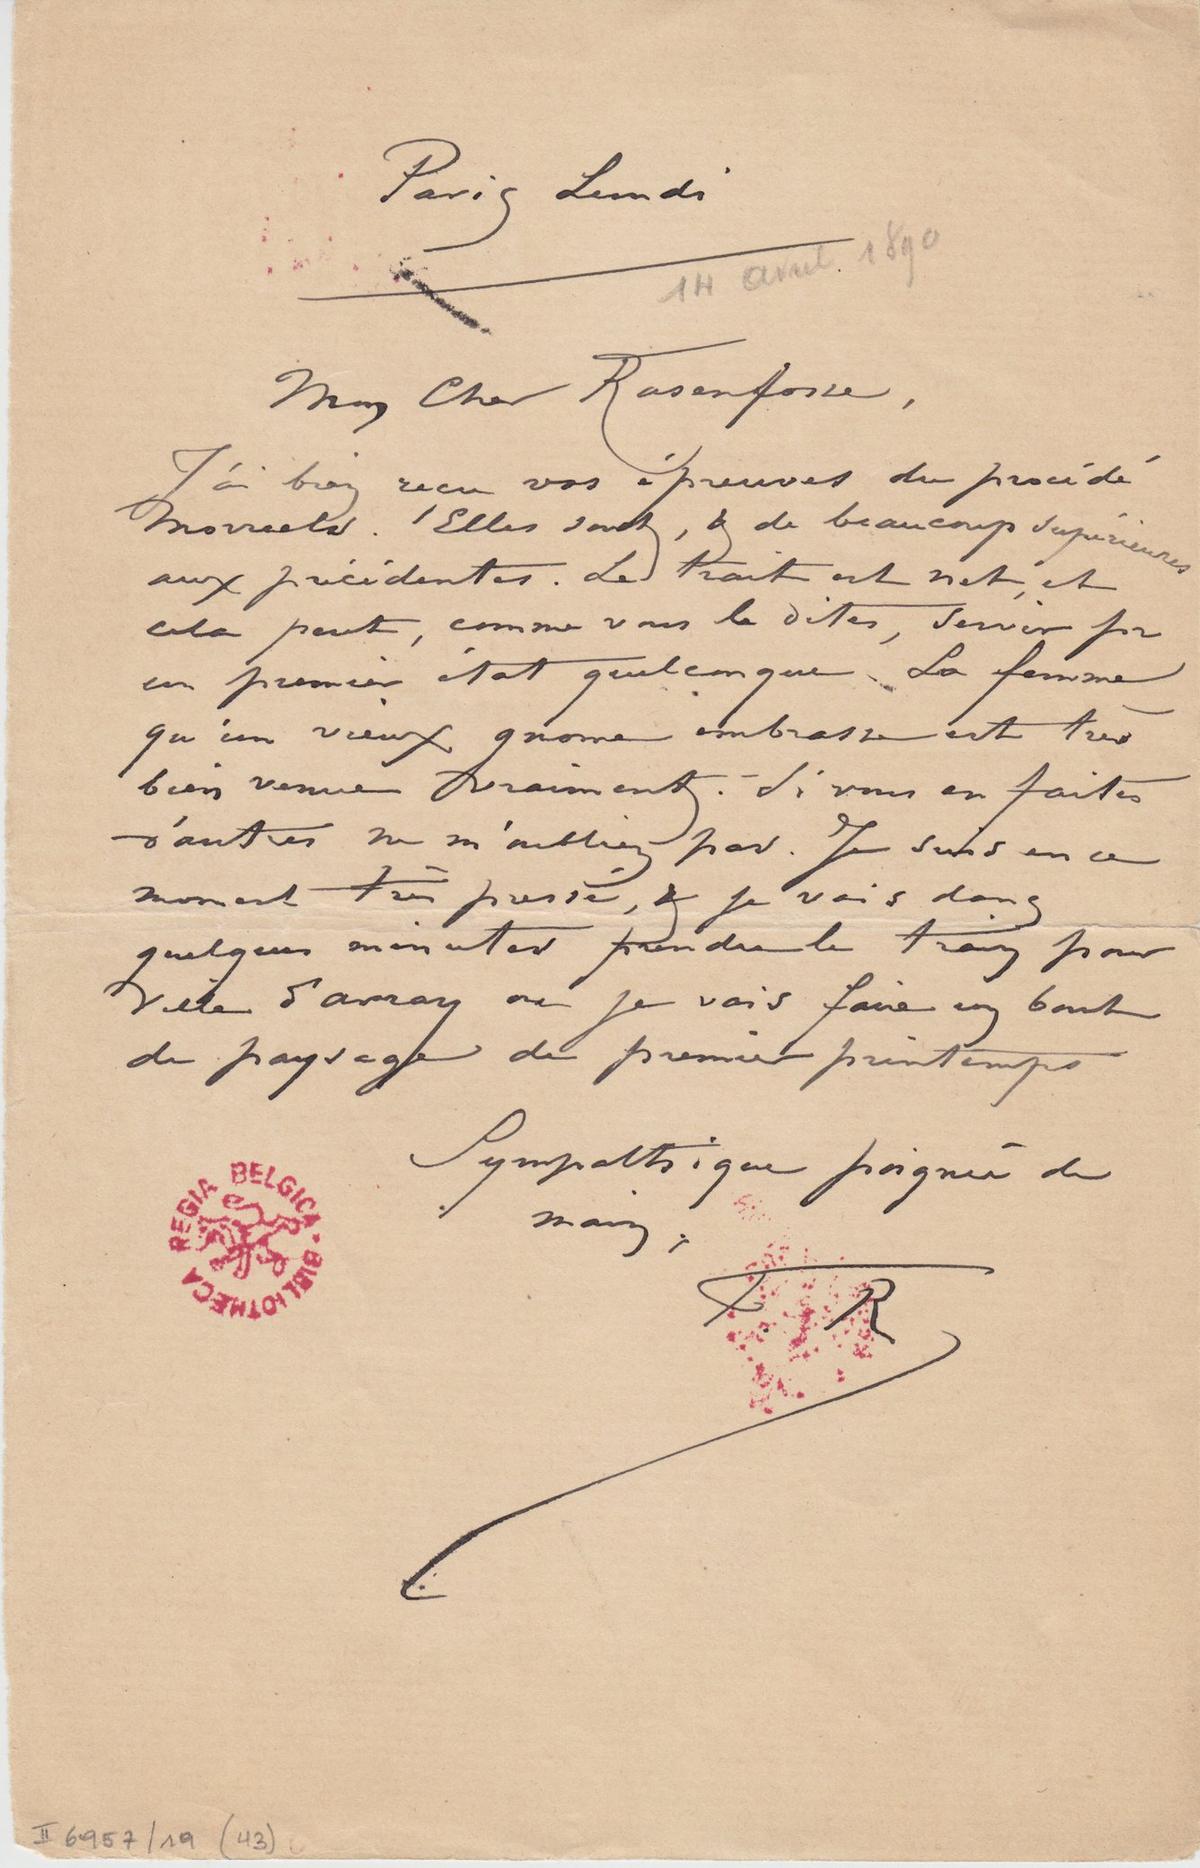 Paris Lundi
14 avril 1890
Mon Cher Rasenfosse,
J'ai bien reçu vos épreuves du procédé
Morreels. Elles sont, & de beaucoup supérieures
aux précédentes. Le trait est net, et
cela peut, comme vous le dites, servir pr
un premier état quelconque. La femme
qu'un vieux gnome embrasse est très
bien venue vraiment. Si vous en faites
d'autres ne m'oubliez pas. Je suis en ce
moment très pressé, & je vais dans
quelques minutes prendre le train pour
Ville d'avray où je vais faire un bout
de paysage de premier printemps
Sympathique poignée de
main,
F. R
REGIA BELGICA BIBLIOTHECA
II 6957/19 (43)